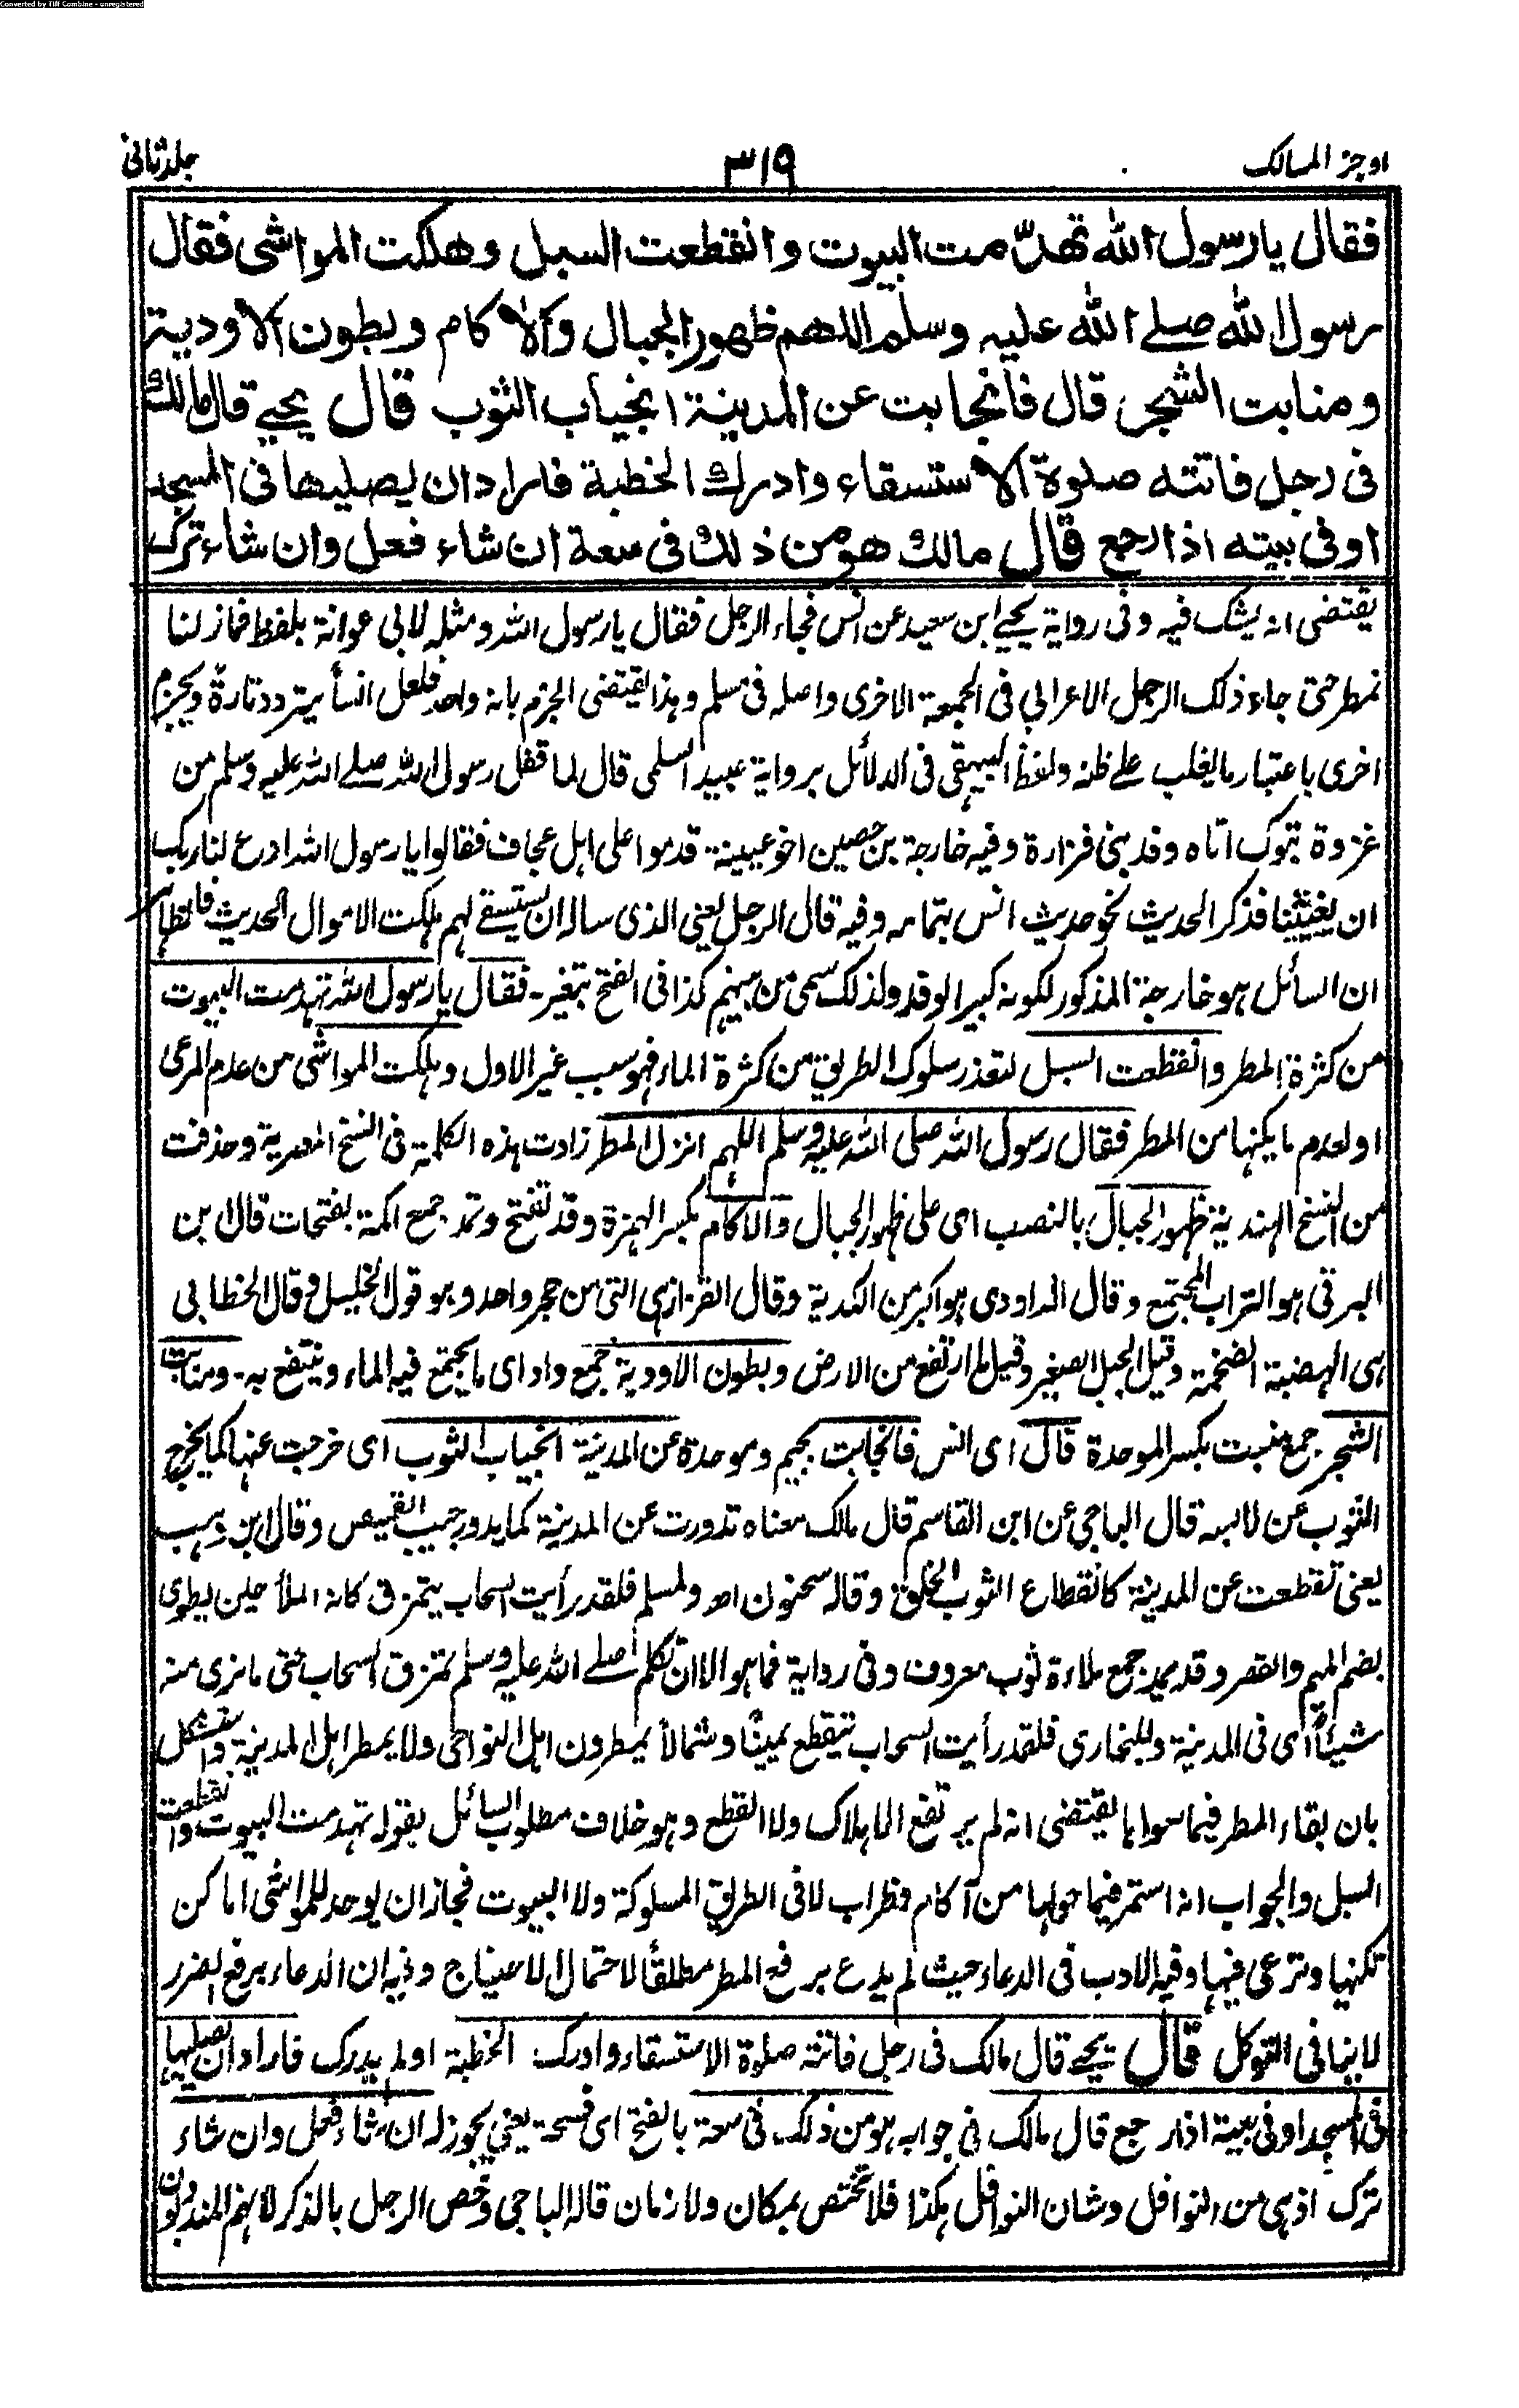 Converted by Tiff Combine - unregistered
اوجز المسالک ۳۱۹ جلد ثانی
فقال يا رسول الله تهدّمت البيوت وانقطعت السبل وهلكت المواشى فقال
رسول الله صلے الله عليه وسلم اللهم ظهور الجبال والاٰكام وبطون الاودية
ومنابت الشجر قال فانجابت عن المدينة انجياب الثوب قال يحيے قال مالك
فى رجل فاتته صلوة الاستسقاء وادرك الخطبة فاراد ان يصليها فى المسجد
او فى بيته اذا رجع قال مالك هو من ذلك فى سعة ان شاء فعل وان شاء ترك
يقتضى انه يشك فيه وفى رواية يحيے ابن سعيد عن انس فجاء الرجل فقال يا رسول الله ومثله لابى عوانة بلفظ فما زلنا
نمطر حتى جاء ذلك الرجل الاعرابي فى الجمعة الاخرى واصله فى مسلم وهذا يقتضى الجزم بانه واحد فلعل انسأ يتردد تارة ويجزم
اخرى باعتبار ما يغلب علے ظنه ولفظ البيهقى فى الدلائل برواية عبيد السلمى قال لما قفل رسول الله صلے الله عليه وسلم من
غزوة تبوك اتاه وفد بنى فزارة وفيه خارجة بن حصين اخو عيينة قدموا على ابل عجاف فقالوا يا رسول الله ادع لنا ربك
ان يغيثنا فذكر الحديث نحو حديث انس بتمامه وفيه قال الرجل يعنى الذى ساله ان يستسقے لهم هلكت الاموال الحديث فالظاهر
ان السائل هو خارجة المذكور لكونه كبير الوفد ولذلك سمى من بينهم كذا فى الفتح بتغير۔ فقال يا رسول الله تهدمت البيوت
من كثرة المطر وانقطعت السبل لتعذر سلوك الطريق من كثرة الماء فهو سبب غير الاول وهلكت المواشى من عدم المرعى
او لعدم ما يكنها من المطر فقال رسول الله صلى الله عليه وسلم اللهم انزل المطر زادت هذه الكلمة فى النسخ المصرية وحذفت
من النسخ الهندية ظهور الجبال بالنصب اى على ظهور الجبال والاكام بكسر الهمزة وقد تفتح وتمد جمع اكمة بفتحات قال ابن
البرقى هو التراب المجتمع وقال الداودى هو اكبر من الكدية وقال القزاز هى التى من حجر واحد وهو قول الخليل وقال الخطابى
هى الهضبة الضخمة وقيل الجبل الصغير وقيل ما ارتفع من الارض وبطون الاودية جمع واد اى ما يجتمع فيه الماء وينتفع به۔ ومنابت
الشجر جمع منبت بكسر الموحدة قال اى انس فانجابت بجيم وموحدة عن المدينة انجياب الثوب اى خرجت عنها كما يخرج
الثوب عن لابسه قال الباجى عن ابن القاسم قال مالك معناه تدورت عن المدينة كما يدور جيب القميص وقال ابن وهب
يعنى تقطعت عن المدينة كانقطاع الثوب الخلق وقاله سحنون اھ ولمسلم فلقد رأيت السحاب يتمزق كانه الملأ حين يطوى
بضم الميم والقصر وقد يمد جمع ملاءة ثوب معروف وفى رواية فما هو الا ان تكلم صلے الله عليه وسلم تمزق السحاب حتى ما نرى منه
شيئاً اى فى المدينة وللبخارى فلقد رأيت السحاب يتقطع يمينًا وشمالاً يمطرون اهل النواحى ولا يمطر اهل المدينة واستشكل
بان بقاء المطر فيما سواها يقتضى انه لم يرتفع الاهلاك ولا القطع وهو خلاف مطلوب السائل بقوله تهدمت البيوت وانقطعت
السبل والجواب انه استمر فيما حولها من آكام وظراب لا فى الطريق المسلوكة ولا البيوت فجاز ان يوجد للمواشى اماكن
تكنها وترعى فيها وفيه الادب فى الدعاء حيث لم يدع برفع المطر مطلقاً لاحتمال الاحتياج وفيه ان الدعاء برفع الضرر
لا ينافى التوكل قال يحيے قال مالك فى رجل فاتته صلوة الاستسقاء وادرك الخطبة اولم يدرك فاراد ان يصليها
فى المسجد او فى بيته اذا رجع قال مالك فى جوابه هو من ذلك فى سعة بالفتح اى فسحة يعني يجوز له ان شاء فعل وان شاء
ترك اذ هى من النوافل وشان النوافل هكذا فلا تختص بمكان ولا زمان قاله الباجى وخص الرجل بالذكر لانهم المندوبون